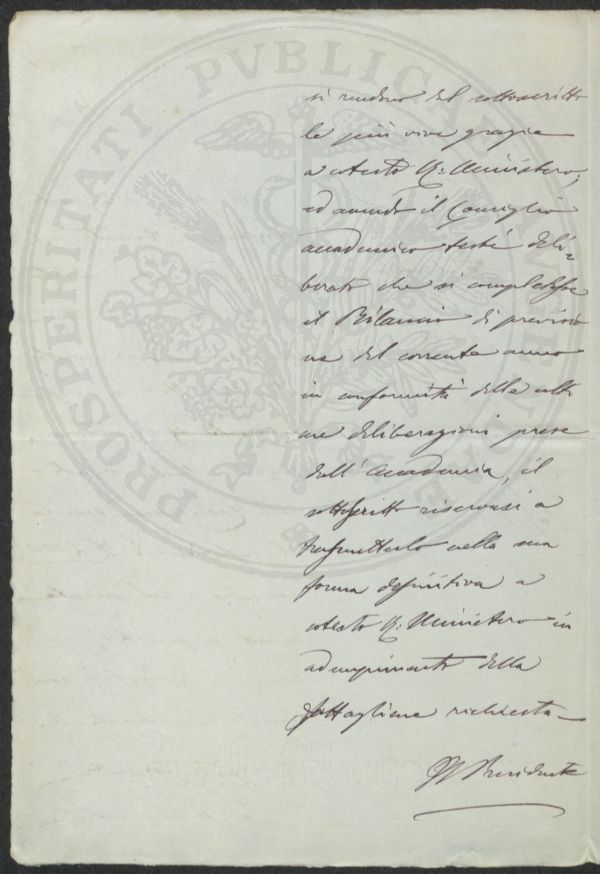 PROSPERITATI PUBLICAE AUGENDAE
si rendono dal sottoscritto
le più vive grazie
a cotesto R. Ministero,
ed avendo il Consiglio
accademico testè deli-
berato che si completasse
il Bilancio di previsio
ne del corrente anno
in conformità delle ulti
me deliberazioni prese
dall'Accademia, il
sottoscritto riservasi a
trasmetterlo nella sua
forma definitiva a
cotesto R. Ministero in
adempimento della
fattagliene richiesta_
Il Presidente